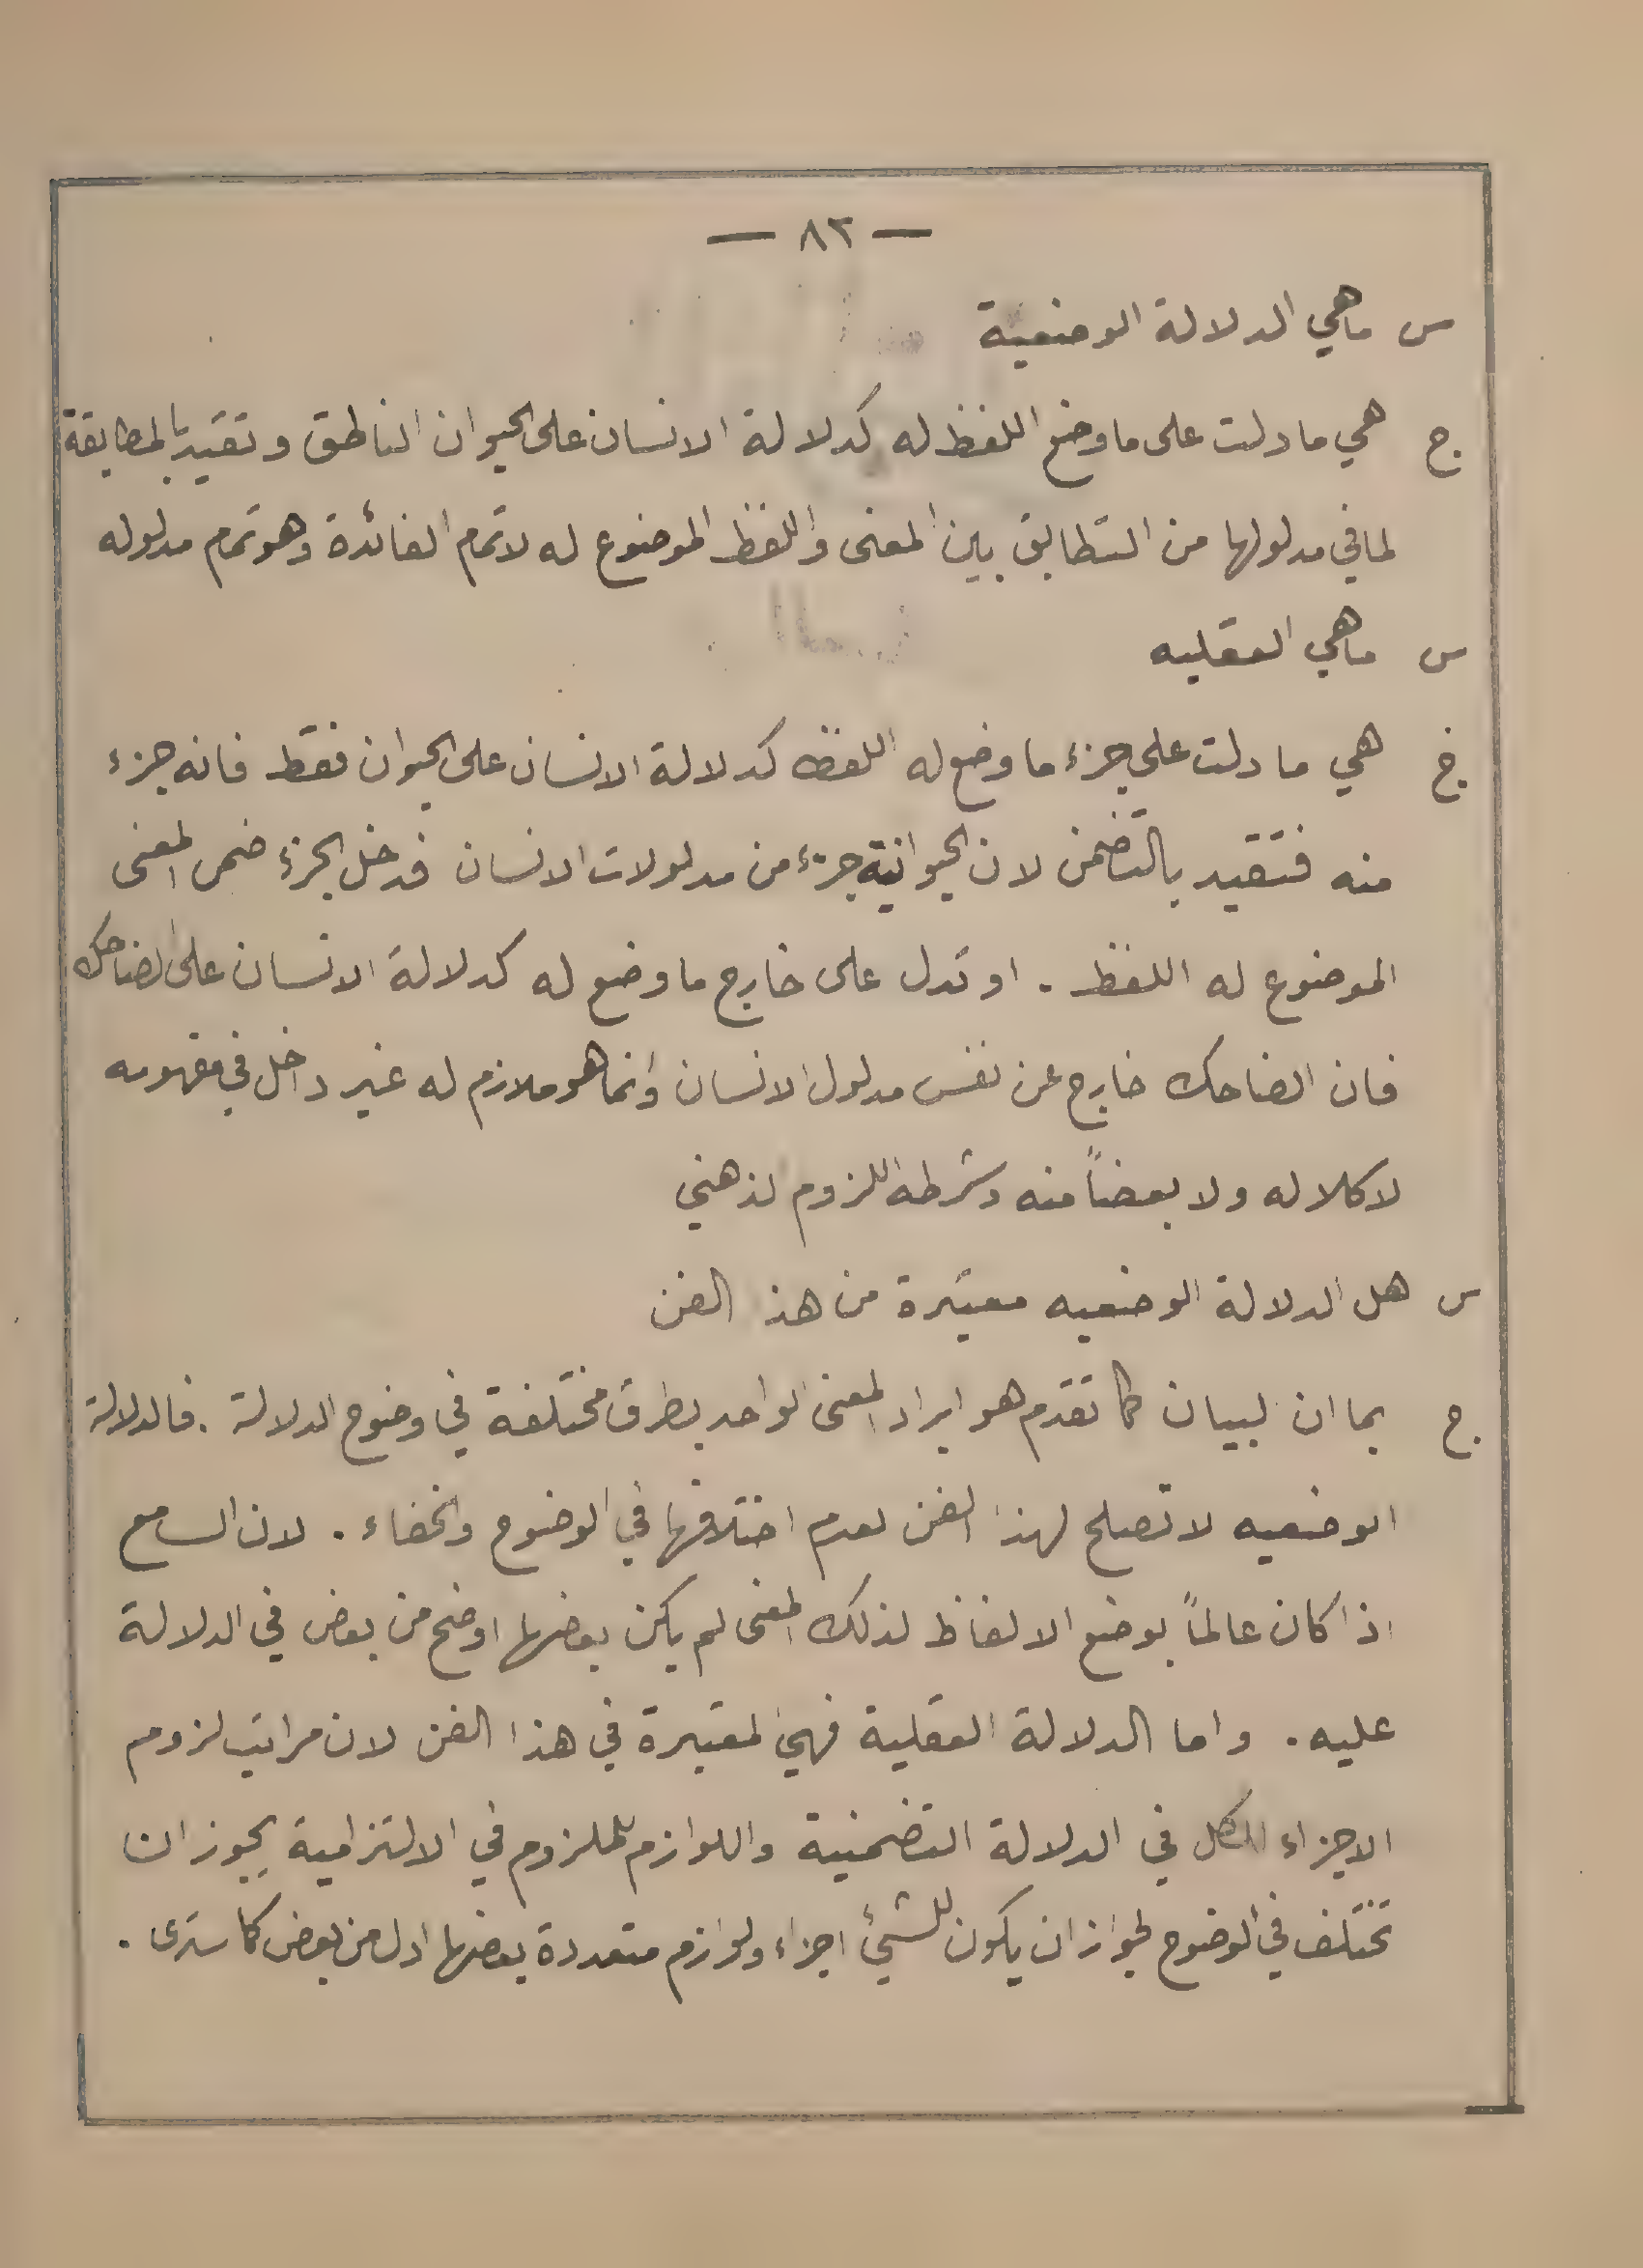 — ٨٢ —
س ماهي الدلالة الوضعية
ج هي ما دلت على ما وضع اللفظ له كدلالة الانسان على الحيوان الناطق وتقيد بالمطابقة
لما في مدلولها من التطابق بين المعنى واللفظ الموضوع له لاتمام الفائدة وهو تمام مدلوله
س ماهي العقليه
ج هي ما دلت على جزء ما وضع له اللفظ كدلالة الانسان على الحيوان فقط فانه جزء
منه فتقيد بالتضمن لان الحيوانية جزء من مدلولات الانسان فدخل الجزء ضمن المعنى
الموضوع له اللفظ . او تدل على خارج ما وضع له كدلالة الانسان على الضاحك
فان الضاحك خارج عن نفس مدلول الانسان وانما هو ملازم له غير داخل في مفهومه
لا كلا له ولا بعضاً منه وشرطه اللزوم الذهني
س هل الدلالة الوضعيه معتبرة من هذا الفن
ج بما ان البيان كما تقدم هو ايراد المعنى الواحد بطرق مختلفة في وضوح الدلالة . فالدلالة
الوضعيه لا تصلح لهذا الفن لعدم اختلافها في الوضوح والخفاء . لان السامع
اذا كان عالماً بوضع الالفاظ لذلك المعنى لم يكن بعضها اوضح من بعض في الدلالة
عليه . واما الدلالة العقلية فهي المعتبرة في هذا الفن لان مراتب لزوم
الاجزاء للكل في الدلالة التضمنية واللوازم للملزوم في الالتزامية يجوز ان
تختلف في الوضوح لجواز ان يكون للشئ اجزاء ولوازم متعددة بعضها ادل من بعض كما سترى .